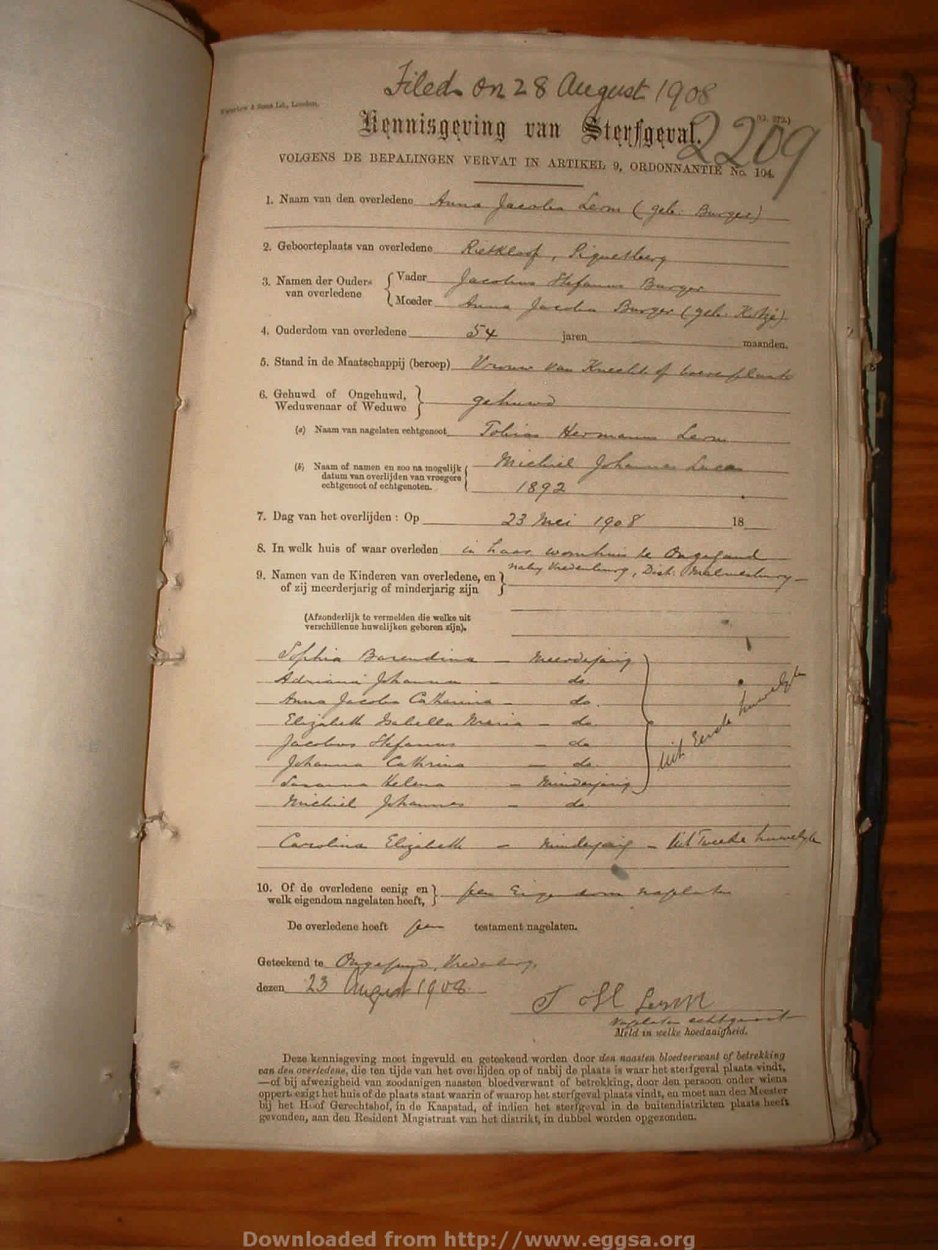 Filed on 28 August 1908
Waterlow & Sons Ld., London.
Kennisgeving van Sterfgeval.
2209
VOLGENS DE BEPALINGEN VERVAT IN ARTIKEL 9, ORDONNANTIE No. 104.
1. Naam van den overledene Anna Jacoba Leom (geb. Burger)
2. Geboorteplaats van overledene Rietkloof, Piquetberg
3. Namen der Ouders van overledene { Vader Jacobus Stefanus Burger
Moeder Anna Jacoba Burger (geb. Kotzé)
4. Ouderdom van overledene 54 jaren — maanden.
5. Stand in de Maatschappij (beroep) Vrouw van Knecht of boerenplaats
6. Gehuwd of Ongehuwd, Weduwenaar of Weduwe } gehuwd
(a) Naam van nagelaten echtgenoot Tobias Hermanus Leom
(b) Naam of namen en zoo na mogelijk datum van overlijden van vroegere echtgenoot of echtgenoten. { Michiel Johannes Lucas
1892
7. Dag van het overlijden : Op 23 Mei 1908 18
8. In welk huis of waar overleden in haar woonhuis te Ongegund
naby Vredenburg, Dist. Malmesbury
9. Namen van de Kinderen van overledene, en of zij meerderjarig of minderjarig zijn }
(Afzonderlijk te vermelden die welke uit verschillenne huwelijken geboren zijn).
Sophia Barendina — Meerderjarig
Adriana Johanna — do.
Anna Jacoba Catherina — do.
Elizabeth Isabella Maria — do
Jacobus Stefanus — do
Johanna Cathrina — do.
Susanna Helena — Minderjarig
Michiel Johannes — do.
Uit Eerste huwelyk
Carolina Elizabeth — Minderjarig — Uit Tweede huwelyk
10. Of de overledene eenig en welk eigendom nagelaten heeft, } geen Eigendom nagelaten
De overledene heeft geen testament nagelaten.
Geteekend te Ongegund, Vredenburg,
dezen 23 August 1908
T H Leom
Nagelaten echtgenoot
Meld in welke hoedanigheid.
Deze kennisgeving moet ingevuld en geteekend worden door den naasten bloedverwant of betrekking
van den overledene, die ten tijde van het overlijden op of nabij de plaats is waar het sterfgeval plaats vindt,
—of bij afwezigheid van zoodanigen naasten bloedverwant of betrekking, door den persoon onder wiens
oppertoezigt het huis of de plaats staat waarin of waarop het sterfgeval plaats vindt, en moet aan den Meester
bij het Hoof Gerechtshof, in de Kaapstad, of indien het sterfgeval in de buitendistrikten plaats heeft
gevonden, aan den Resident Magistraat van het distrikt, in dubbel worden opgezonden.
Downloaded from http://www.eggsa.org